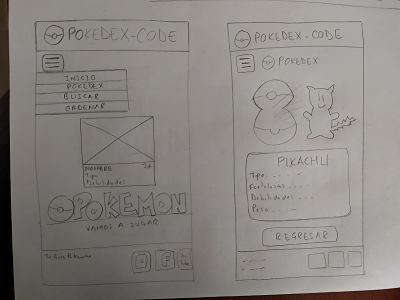 POKEDEX-CODE
INICIO
POKEDEX
BUSCAR
ORDENAR
NOMBRE
Tipo
Debilidades
POKEMON
VAMOS A JUGAR
POKEDEX-CODE
POKEDEX
PIKACHU
Tipo
Fortalezas
Debilidades
Peso
REGRESAR